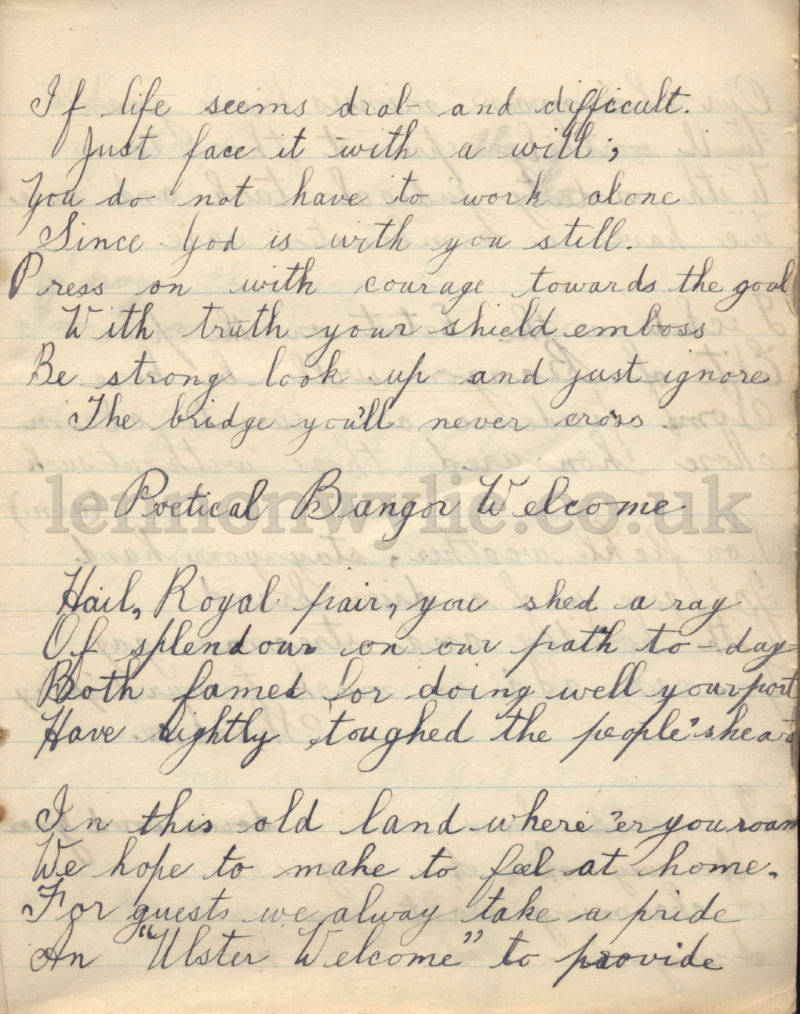 If life seems drab and difficult.
Just face it with a will;
You do not have to work alone
Since God is with you still.
Press on with courage towards the goal
With truth your shield emboss
Be strong look up and just ignore
The bridge you'll never cross.
Poetical Bangor Welcome
lennonwylie.co.uk
Hail, Royal pair, you shed a ray
Of splendour on our path to-day
Both famed for doing well your part
Have rightly toughed the people's heart
In this old land where 'er you roam
We hope to make to feel at home.
For guests we alway take a pride
An "Ulster Welcome" to provide